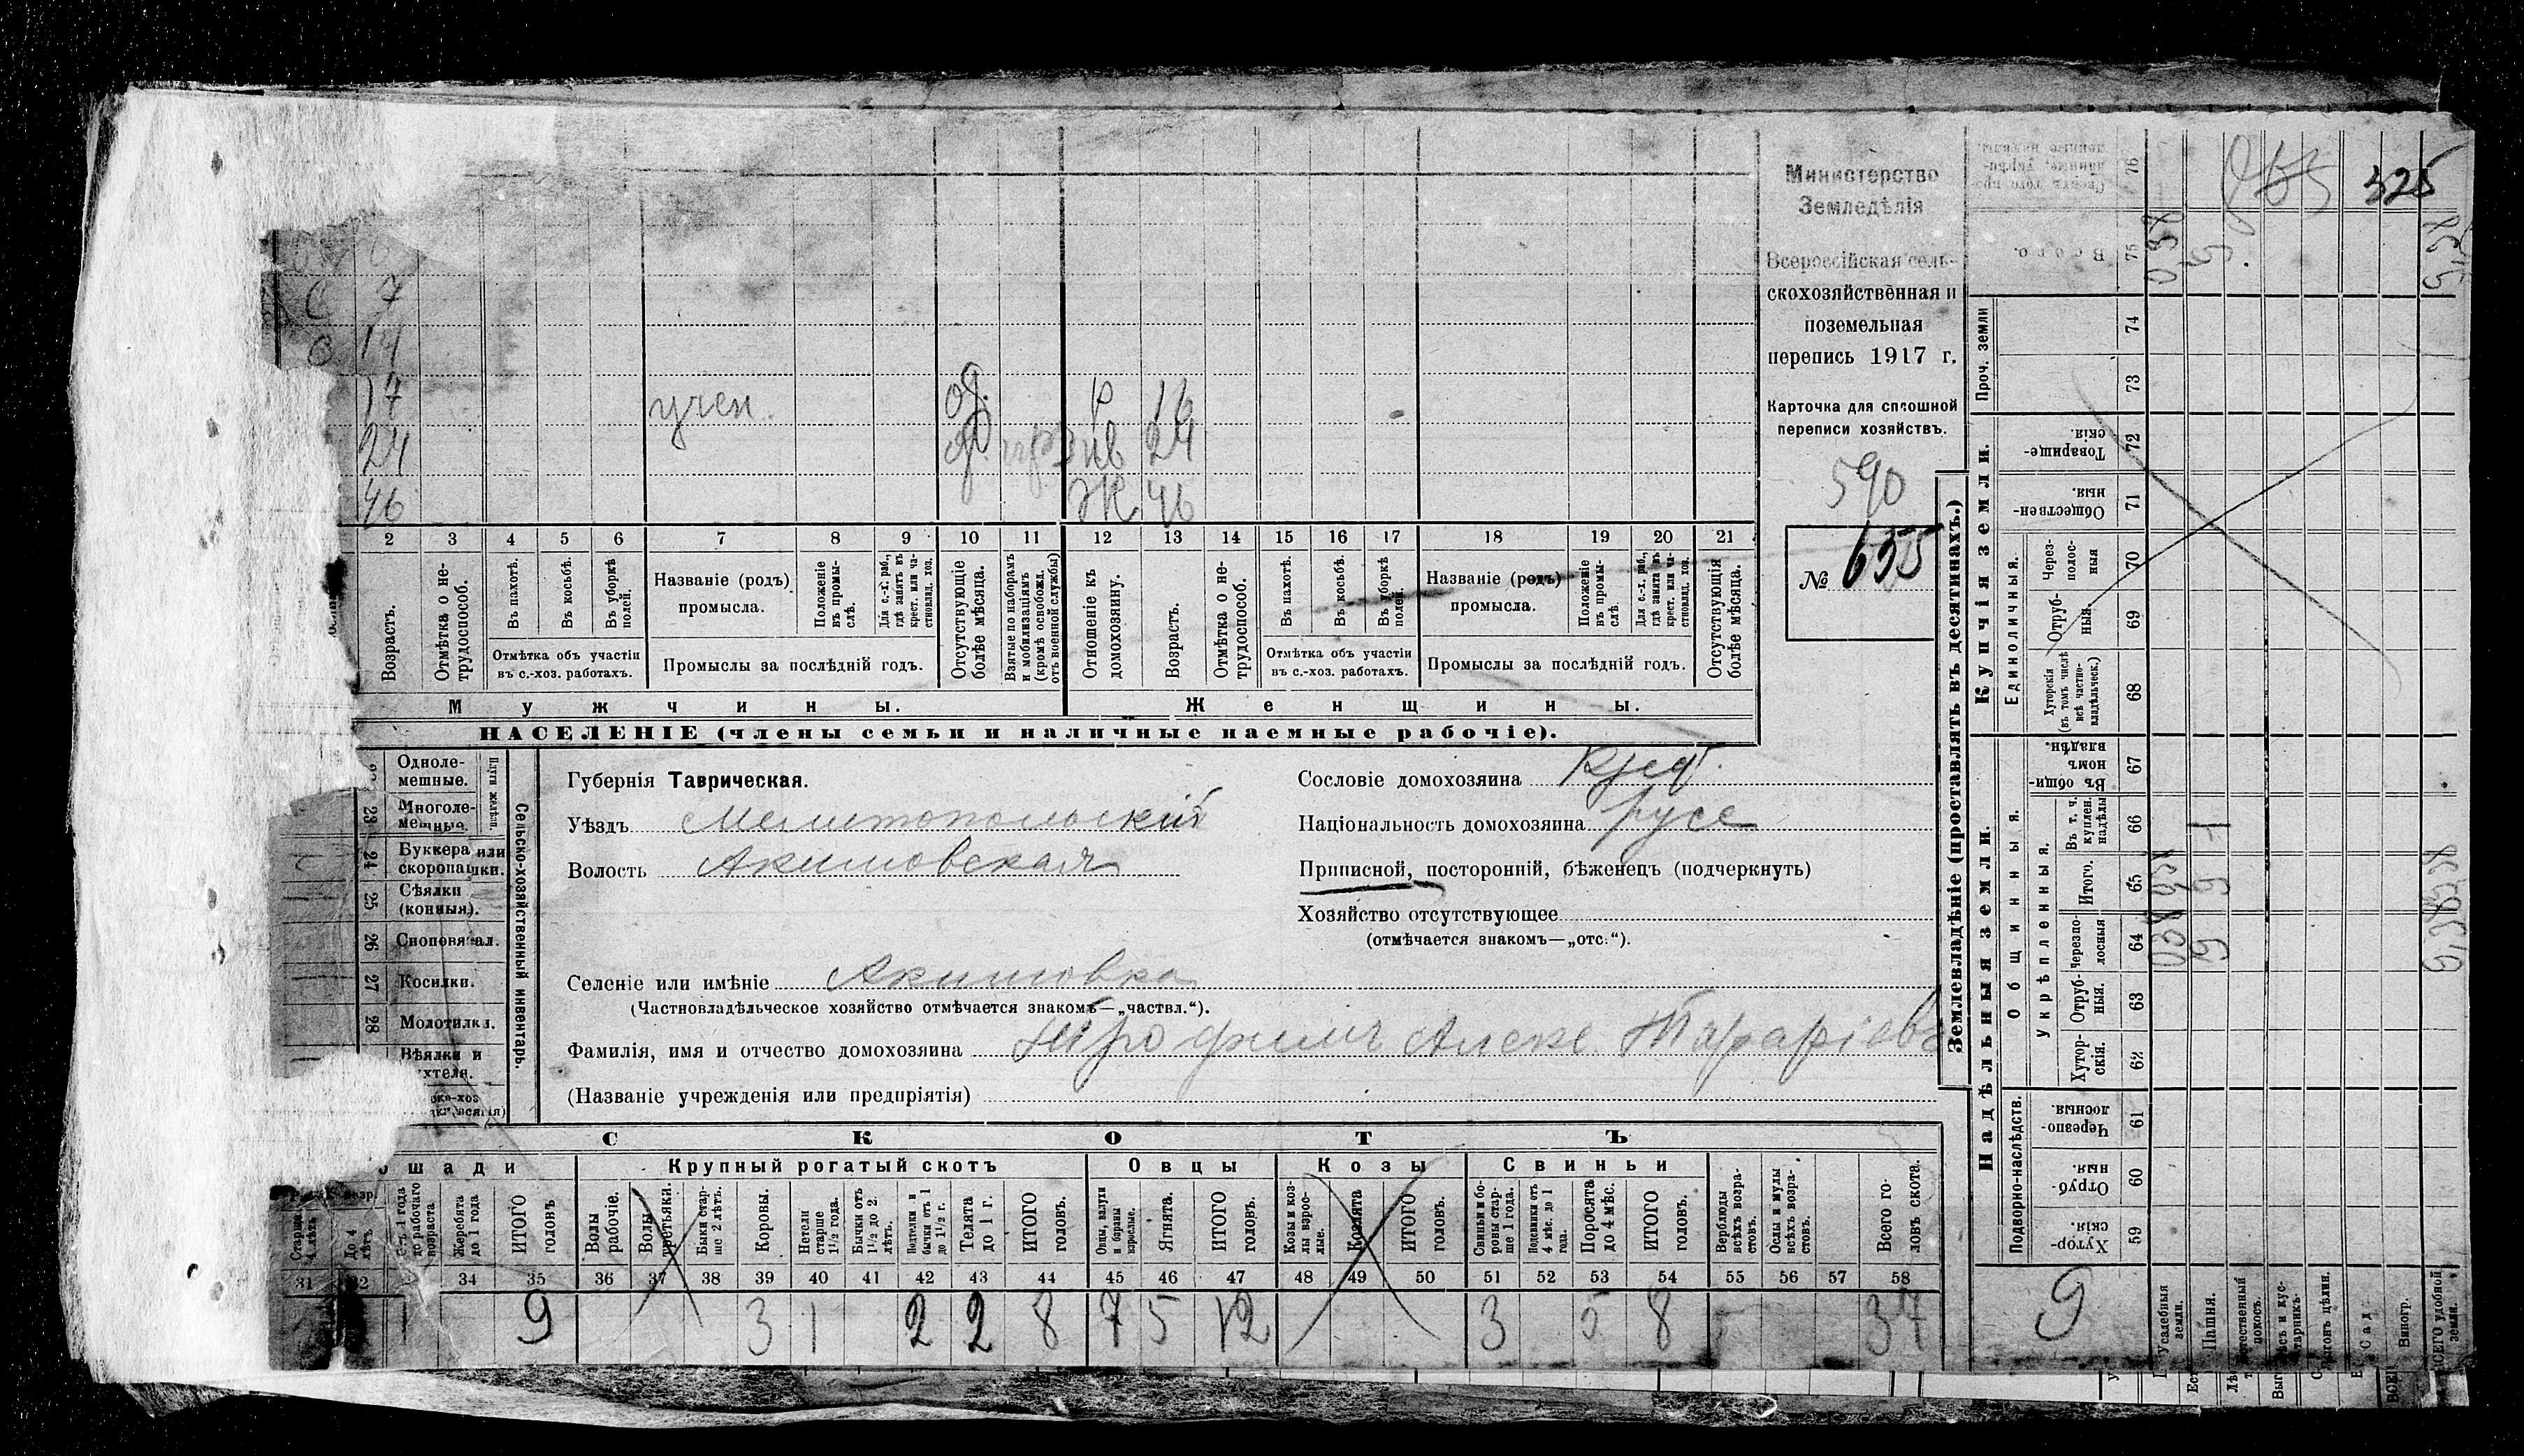 Министерство
Земледѣлія
Всероссійская сель-
скохозяйственная и
поземельная
перепись 1917 г.
Карточка для сплошной
переписи хозяйствъ.
590
№ 655
325
6 7
14
17 учен. р 16
24 24
46 Ж 46
2 3 4 5 6 7 8 9 10 11 12 13 14 15 16 17 18 19 20 21
Возрастъ.
Отмѣтка о не-
трудоспособ.
Въ пахотѣ.
Въ косьбѣ.
Въ уборкѣ
полей.
Отмѣтка объ участіи
въ с.-хоз. работахъ.
Названіе (родъ)
промысла.
Положеніе
въ промы-
слѣ.
Для с.-х. раб.,
гдѣ занятъ въ
крест. или ча-
стновлад. хоз.
Промыслы за послѣдній годъ.
Отсутствующіе
болѣе мѣсяца.
Взятые по наборамъ
и мобилизаціямъ
(кромѣ освобожд.
отъ военной службы)
Отношеніе къ
домохозяину.
Возрастъ.
Отмѣтка о не-
трудоспособ.
Въ пахотѣ.
Въ косьбѣ.
Въ уборкѣ
полей.
Отмѣтка объ участіи
въ с.-хоз. работахъ.
Названіе (родъ)
промысла.
Положеніе
въ промы-
слѣ.
Для с.-х. раб.,
гдѣ занята въ
крест. или ча-
стновлад. хоз.
Промыслы за послѣдній годъ.
Отсутствующія
болѣе мѣсяца.
Мужчины.
Женщины.
НАСЕЛЕНІЕ (члены семьи и наличные наемные рабочіе).
Сельско-хозяйственный инвентарь.
Одноле-
мешные.
23 Многоле-
мешные.
24 Буккера или
скоропашки.
25 Сѣялки
(конныя).
26 Сноповязал.
27 Косилки.
28 Молотилки.
Вѣялки и
Губернія Таврическая.
Уѣздъ Мелитопольскій
Волость Акимовская
Сословіе домохозяина Крест.
Національность домохозяина русс
Приписной, посторонній, бѣженецъ (подчеркнуть)
Хозяйство отсутствующее
(отмѣчается знакомъ—„отс.“).
Селеніе или имѣніе Акимовка
(Частновладѣльческое хозяйство отмѣчается знакомъ—„частвл.“).
Фамилія, имя и отчество домохозяина Трофимъ Алекс.
(Названіе учрежденія или предпріятія)
СКОТЪ
Крупный рогатый скотъ
Овцы
Козы
Свиньи
Старше
4 лѣтъ
До 4
лѣтъ
Съ 1 года
до рабочаго
возраста
Жеребята
до 1 года
ИТОГО
головъ
Волы
рабочіе.
Волы
Быки стар-
ше 2 лѣтъ.
Коровы.
Нетели
старше
1½ года.
Бычки отъ
1½ до 2
лѣтъ.
Подтелки и
бычки отъ 1
до 1½ г.
Телята
до 1 г.
ИТОГО
головъ.
Овцы, валухи
и бараны
взрослые.
Ягнята.
ИТОГО
головъ.
Козы и коз-
лы взрос-
лые.
Козлята
ИТОГО
головъ.
Свиньи и бо-
ровы стар-
ше 1 года.
Подсвинки отъ
4 мѣс. до 1
года.
Поросята
до 4 мѣс.
ИТОГО
головъ.
Верблюды
всѣхъ возра-
стовъ.
Ослы и мулы
всѣхъ возра-
стовъ.
Всего го-
ловъ скота.
31 32 34 35 36 37 38 39 40 41 42 43 44 45 46 47 48 49 50 51 52 53 54 55 56 57 58
1 9 3 1 2 2 8 7 5 12 3 5 8 37
Землевладѣніе (проставлять въ десятинахъ.)
Надѣльныя земли.
Купчія земли.
Проч. земли
Подворно-наслѣдств.
Общинныя.
Укрѣпленныя.
Единоличныя.
59 Хутор-
скія.
60 Отруб-
ныя.
61 Черезпо-
лосныя.
62 Хутор-
скія.
63 Отруб-
ныя.
64 Черезпо-
лосныя
65 Итого.
66 Въ т. ч.
куплен.
надѣлы
67 Въ общи-
номъ
владѣн.
68 Хуторскія
(въ томъ числѣ
всѣ частно-
владѣльческ.)
69 Отруб-
ныя.
70 Через-
полос-
ныя
71 Обществен-
ныя.
72 Товарище-
скія.
73
74
75 Всего.
76
9
Усадебныя
земли.
Пашня.
Естественный
покосъ.
Виногр.